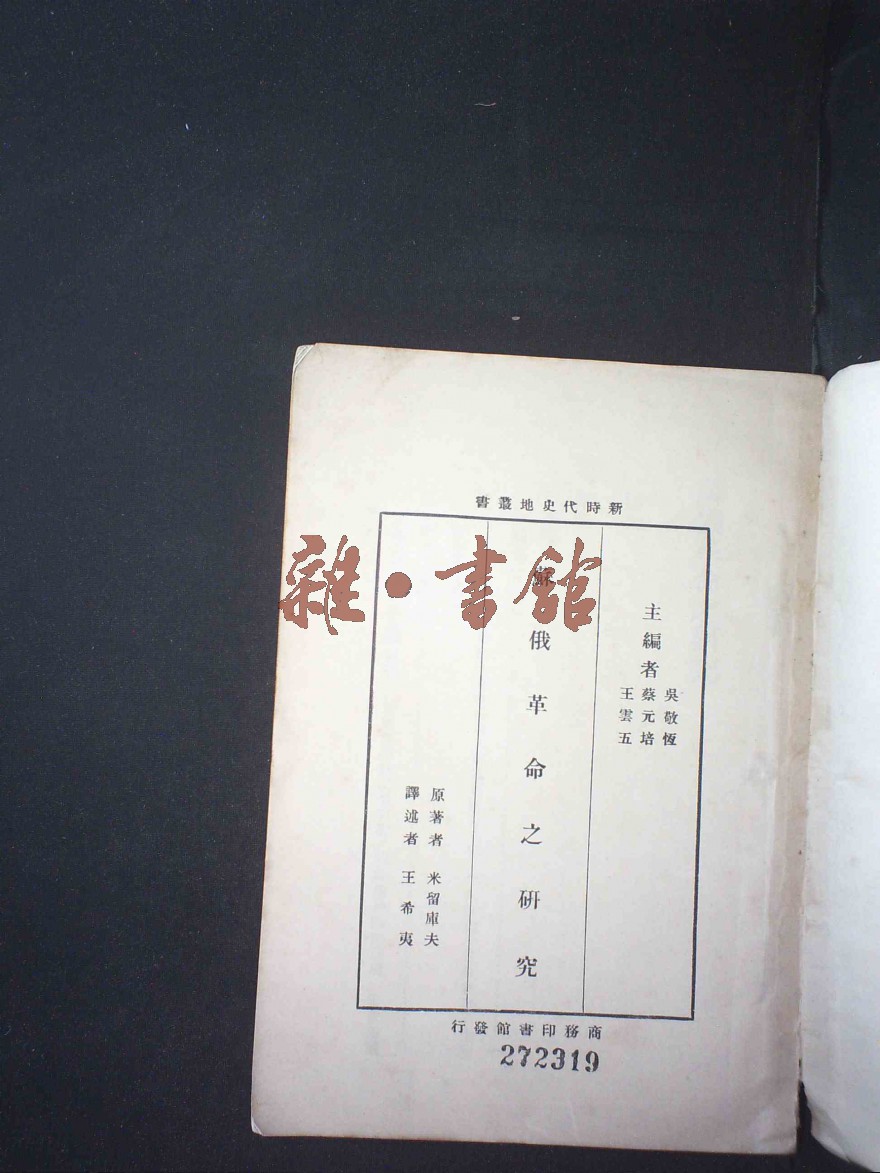 新時代史地叢書
主編者
吳敬恆
蔡元培
王雲五
蘇俄革命之研究
原著者 米留庫夫
譯述者 王希夷
商務印書館發行
272319
雜·書館